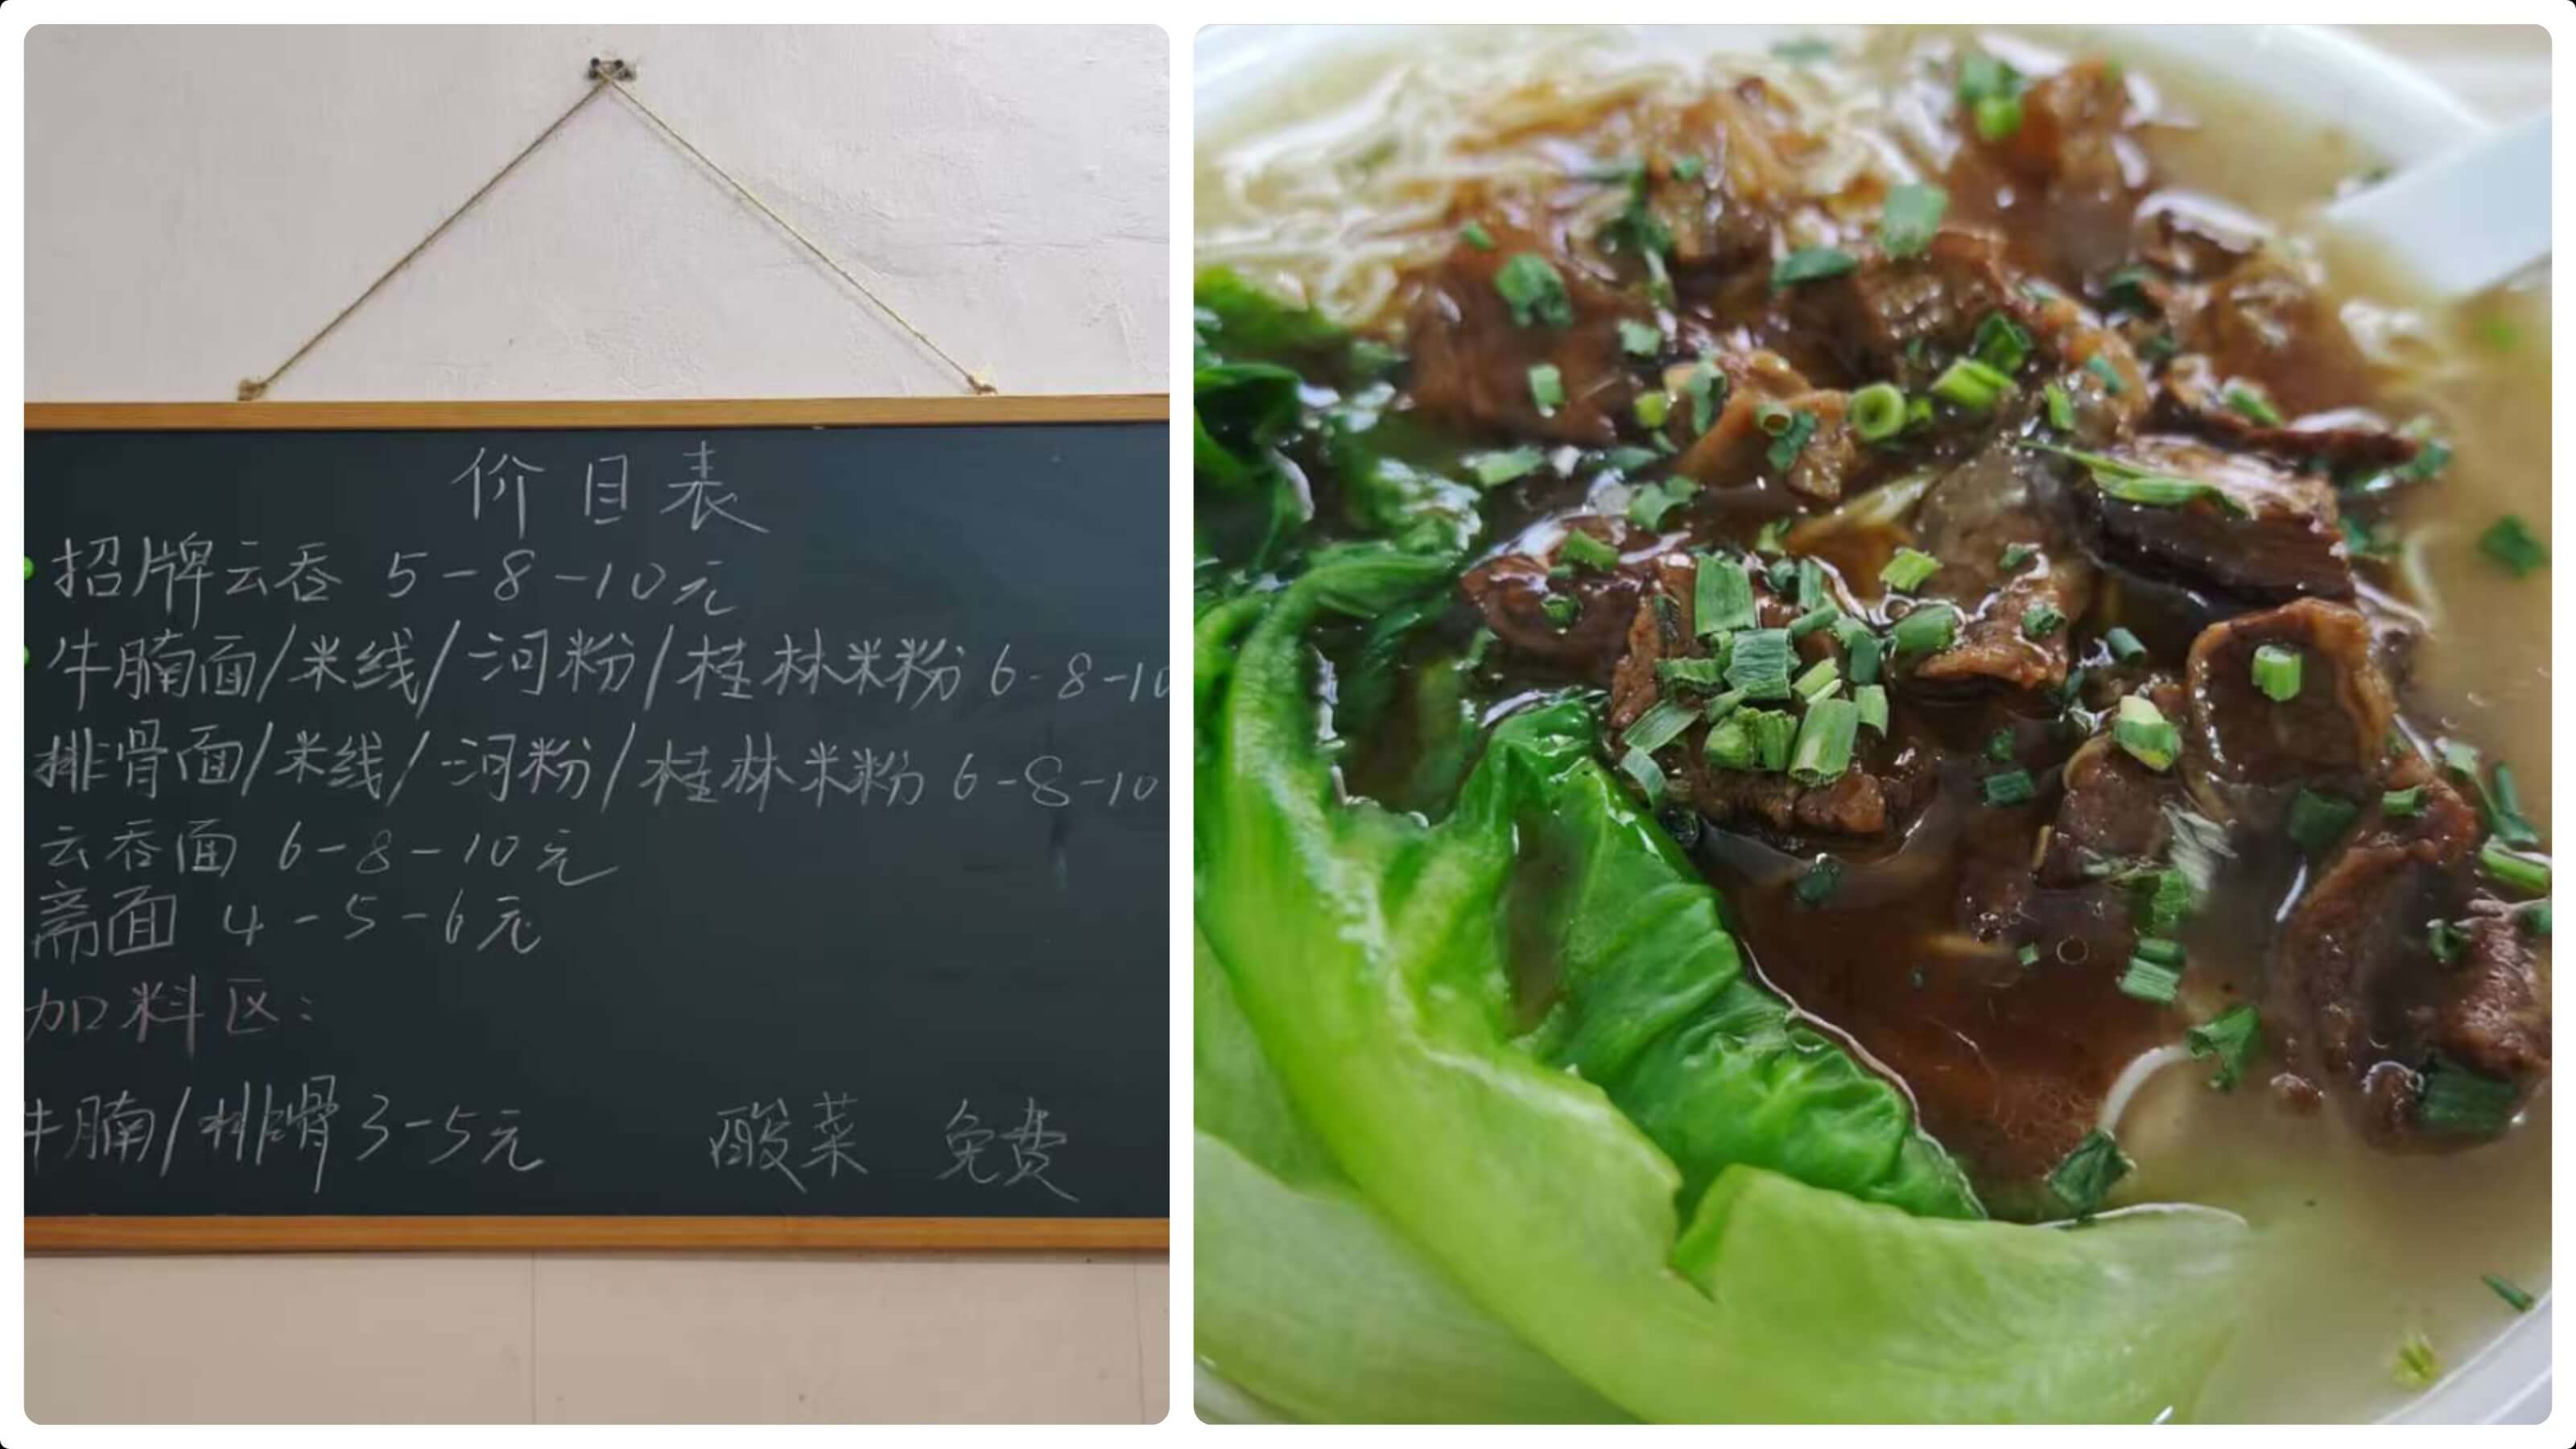 价目表
招牌云吞 5-8-10元
牛腩面/米线/河粉/桂林米粉 6-8-10
排骨面/米线/河粉/桂林米粉 6-8-10
云吞面 6-8-10元
斋面 4-5-6元
加料区:
牛腩/排骨 3-5元 酸菜 免费